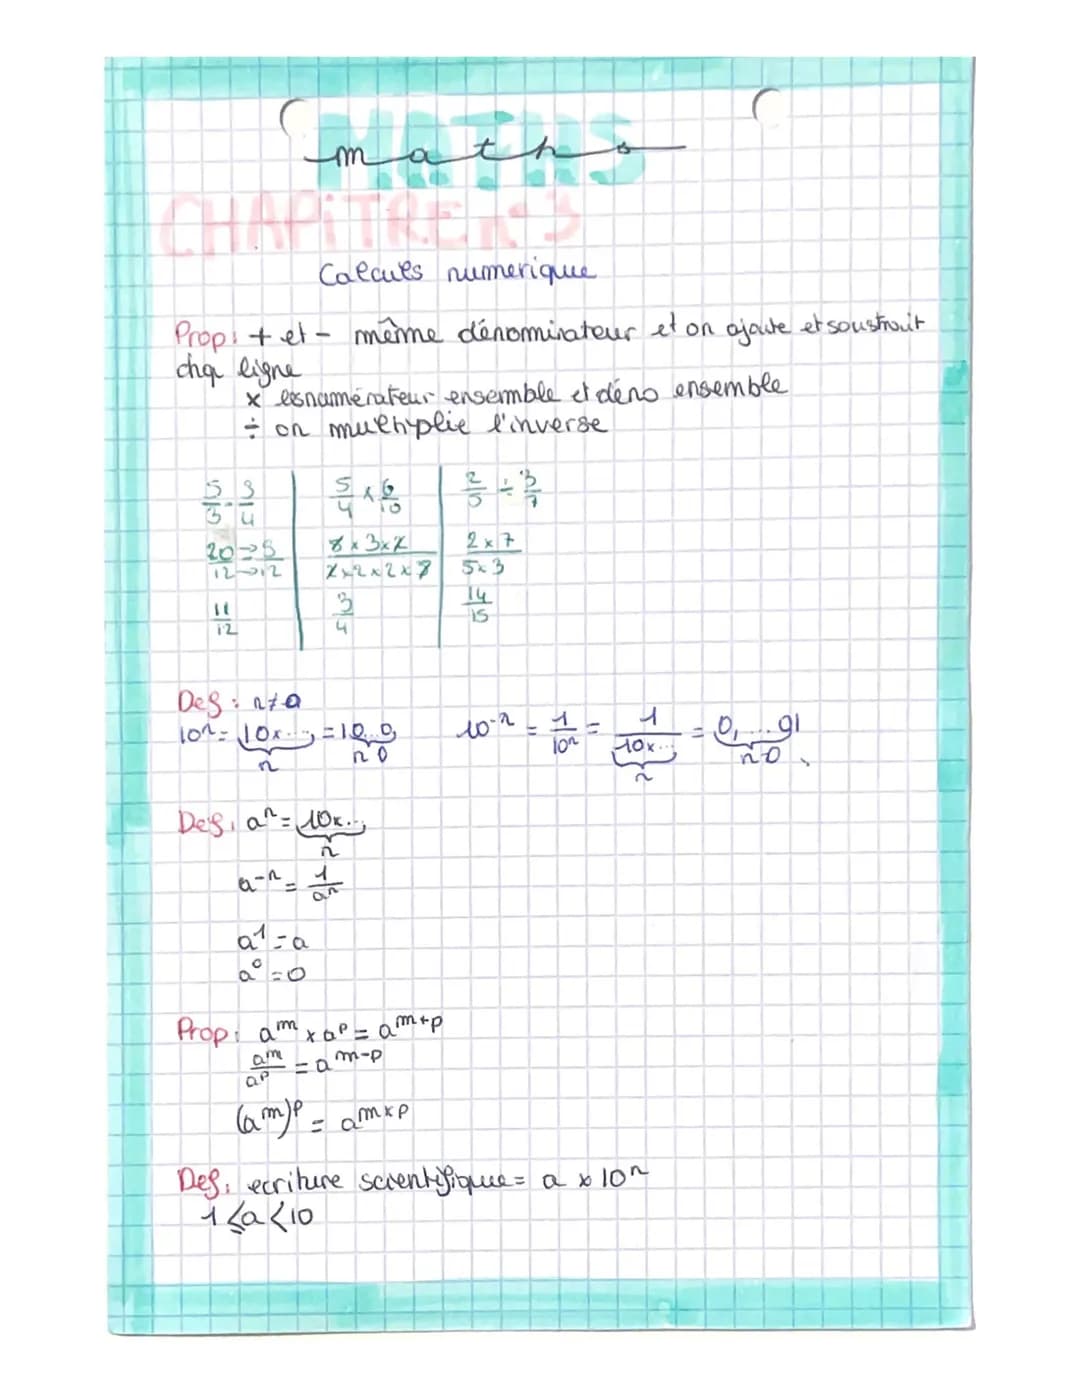 MATHS
maths
CHAPiTRE n°3
Calculs numerique
Prop: + et - même dénominateur et on ajoute et soustrait
chq ligne
x lesnamérateur ensemble et déno ensemble
÷ on multiplie l'inverse
5/3 - 3/4 | 5/4 x 6/10 | 2/5 ÷ 3/7
20->9/12->12 | 5x3x2/2x2x2x5 | 2x7/5x3
11/12 | 3/4 | 14/15
Def: n≠0
10ⁿ = 10x... = 10...0 10⁻ⁿ = 1/10ⁿ = 1/10x... = 0,...01
n n 0 n n 0
Def: aⁿ = 10x...
n
a⁻ⁿ = 1/aⁿ
a¹ = a
a⁰ = 0
Prop: aᵐ x aᵖ = aᵐ⁺ᵖ
aᵐ/aᵖ = aᵐ⁻ᵖ
(aᵐ)ᵖ = aᵐˣᵖ
Def: ecriture scientifique = a x 10ⁿ
1 ⩽ a < 10